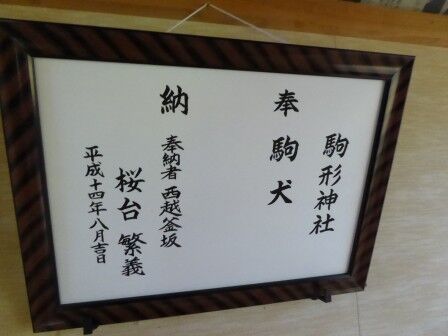 駒形神社
奉
駒犬
納
奉納者 西越釜坂
桜台 繁義
平成十四年八月吉日